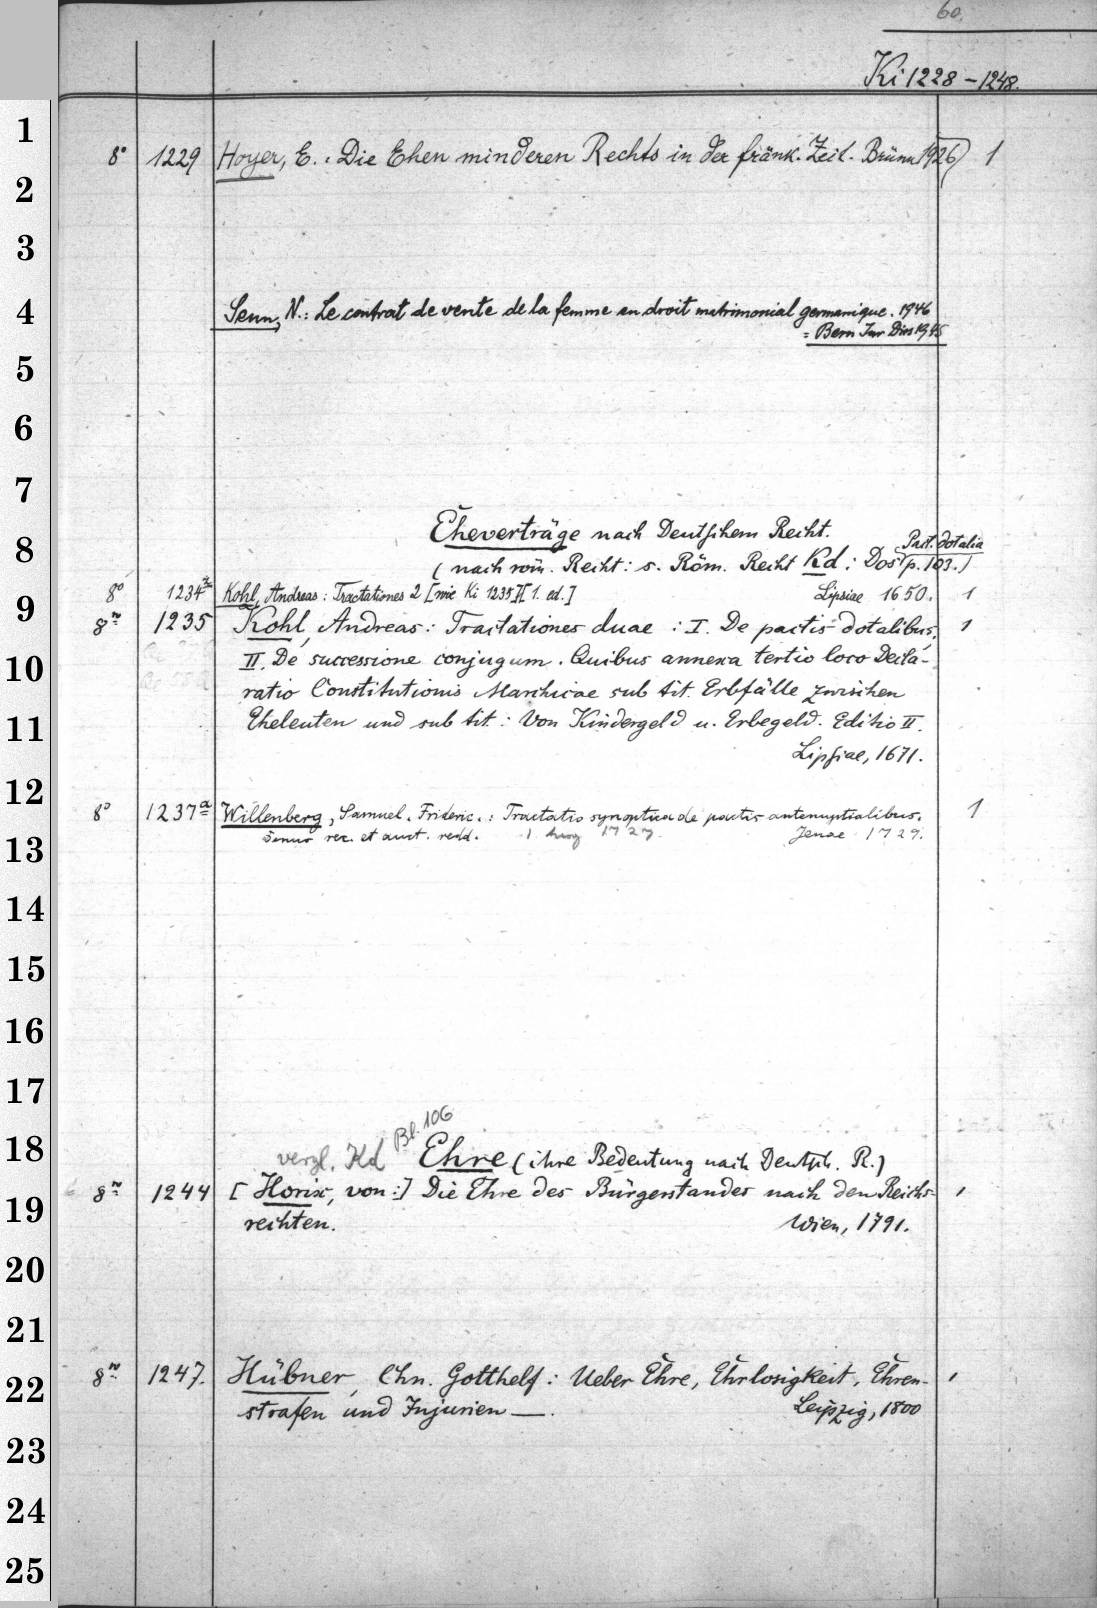 60.
Ki 1228-1248.
1
8° 1229 Hoyer, E.: Die Ehen minderen Rechts in der fränk. Zeit. Brünn 1926) 1
2
3
4 Senn, N.: Le contrat de vente de la femme en droit matrimonial germanique. 1946
= Bern Jur Diss 1945
5
6
7
Eheverträge nach Deutschem Recht.
8 Pact. dotalia
(nach röm. Recht: s. Röm. Recht Kd: Dos (p. 103.)
8° 1234 Kohl, Andreas: Tractationes 2 [wie Ki 1235][1. ed.] Lipsiae 1650. 1
9
8° 1235 Kohl, Andreas: Tractationes duae: I. De pactis dotalibus, 1
10 II. De successione conjugum. Quibus annexa tertio loco Decla-
ratio Constitutionis Marchicae sub tit. Erbfälle zwischen
11 Eheleuten und sub tit.: Von Kindergeld u. Erbegeld. Editio II.
Lipsiae, 1671.
12
8° 1237a Willenberg, Samuel. Frideric.: Tractatio synoptica de pactis antenuptialibus. 1
13 denuo rec. et auct. redd. 1727 Jenae 1729.
14
15
16
17
18 vergl. Kd Bl. 106 Ehre (ihre Bedeutung nach Deutsch. R.)
8° 1244 [Horix, von:] Die Ehre des Bürgerstandes nach den Reichs- 1
19 rechten. Wien, 1791.
20
21
8° 1247. Hübner, Chn. Gotthelf: Ueber Ehre, Ehrlosigkeit, Ehren- 1
22 strafen und Injurien —. Leipzig, 1800
23
24
25